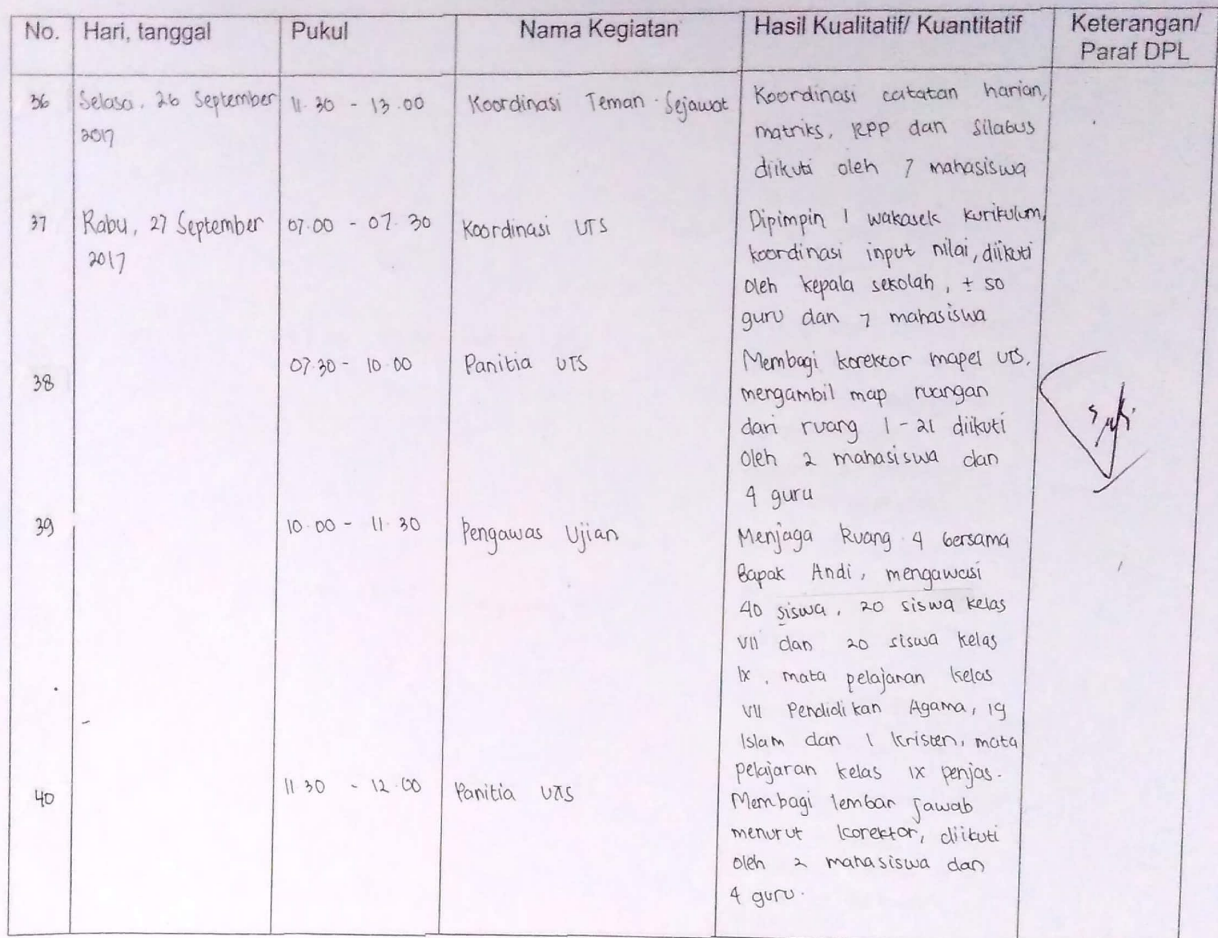 No. Hari, tanggal Pukul Nama Kegiatan Hasil Kualitatif/ Kuantitatif Keterangan/
Paraf DPL
36 Selasa, 26 September 11.30 - 13.00 Koordinasi Teman Sejawat Koordinasi catatan harian,
2017 matriks, RPP dan Silabus
diikuti oleh 7 mahasiswa
37 Rabu, 27 September 07.00 - 07.30 Koordinasi UTS Dipimpin 1 wakasek kurikulum,
2017 koordinasi input nilai, diikuti
oleh kepala sekolah, ± 50
guru dan 7 mahasiswa
38 07.30 - 10.00 Panitia UTS Membagi korektor mapel UTS,
mengambil map ruangan
dari ruang 1 - 21 diikuti
oleh 2 mahasiswa dan
4 guru
39 10.00 - 11.30 Pengawas Ujian Menjaga Ruang 4 bersama
Bapak Andi, mengawasi
40 siswa, 20 siswa kelas
VII dan 20 siswa kelas
IX, mata pelajaran kelas
VII Pendidikan Agama, 19
Islam dan 1 Kristen, mata
pelajaran kelas IX penjas.
40 11.30 - 12.00 Panitia UTS Membagi lembar jawab
menurut korektor, diikuti
oleh 2 mahasiswa dan
4 guru.